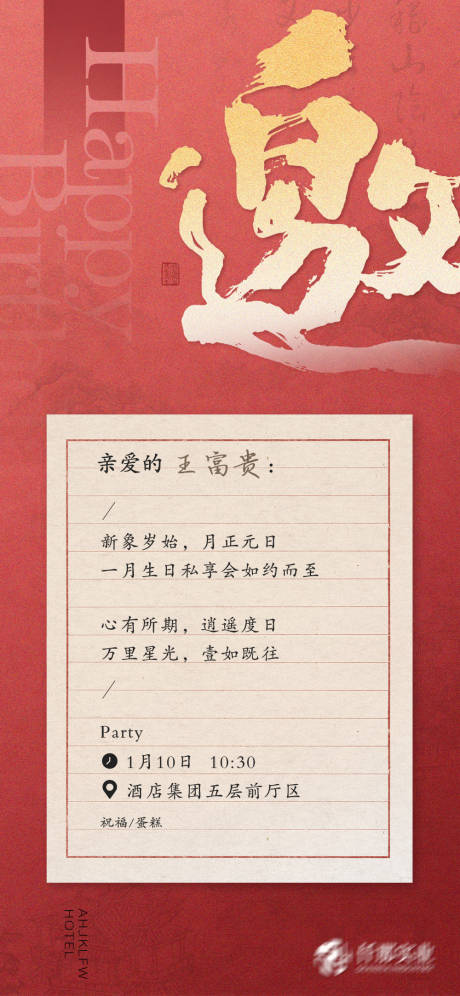 Happy
Birth
邀
亲爱的 王富贵：
/
新象岁始，月正元日
一月生日私享会如约而至
心有所期，逍遥度日
万里星光，壹如既往
/
Party
1月10日 10:30
酒店集团五层前厅区
祝福/蛋糕
AHJKLFW
HOTEL